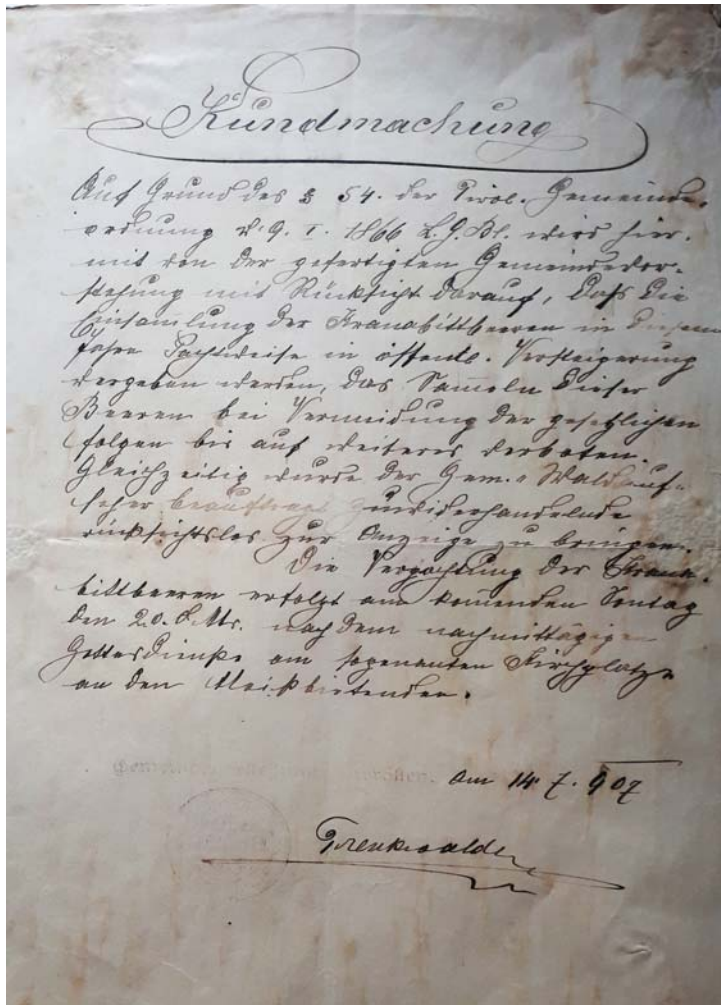 Kundmachung
Auf Grund des § 54. der Tirol. Gemeinde-
ordnung v. 9. I. 1866 L.G.Bl. wird hier-
mit von der gefertigten Gemeindevor-
stehung mit Rücksicht darauf, daß die
Einsamlung der Kranabittbeeren in diesem
Jahre Pachtweise in öffentl. Versteigerung
vergeben werden, das Sameln dieser
Beeren bei Vermeidung der gesetzlichen
folgen bis auf weiteres verboten.
Gleichzeitig wurde der Gem. Waldauf-
seher beauftragt zuwiderhandelnde
rücksichtslos zur Anzeige zu bringen.
Die Verpachtung der Krane-
bittbeeren erfolgt am komenden Sontag
den 20. d. Mts. nach dem nachmittägigen
Gottesdienste am sogenanten Kirchplatze
an den Meistbietenden.
am 14. 7. 907
Trenkwalder